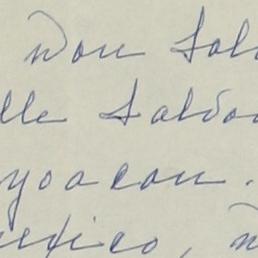 Don Sal
lle Salvo
yoacan.
exico,